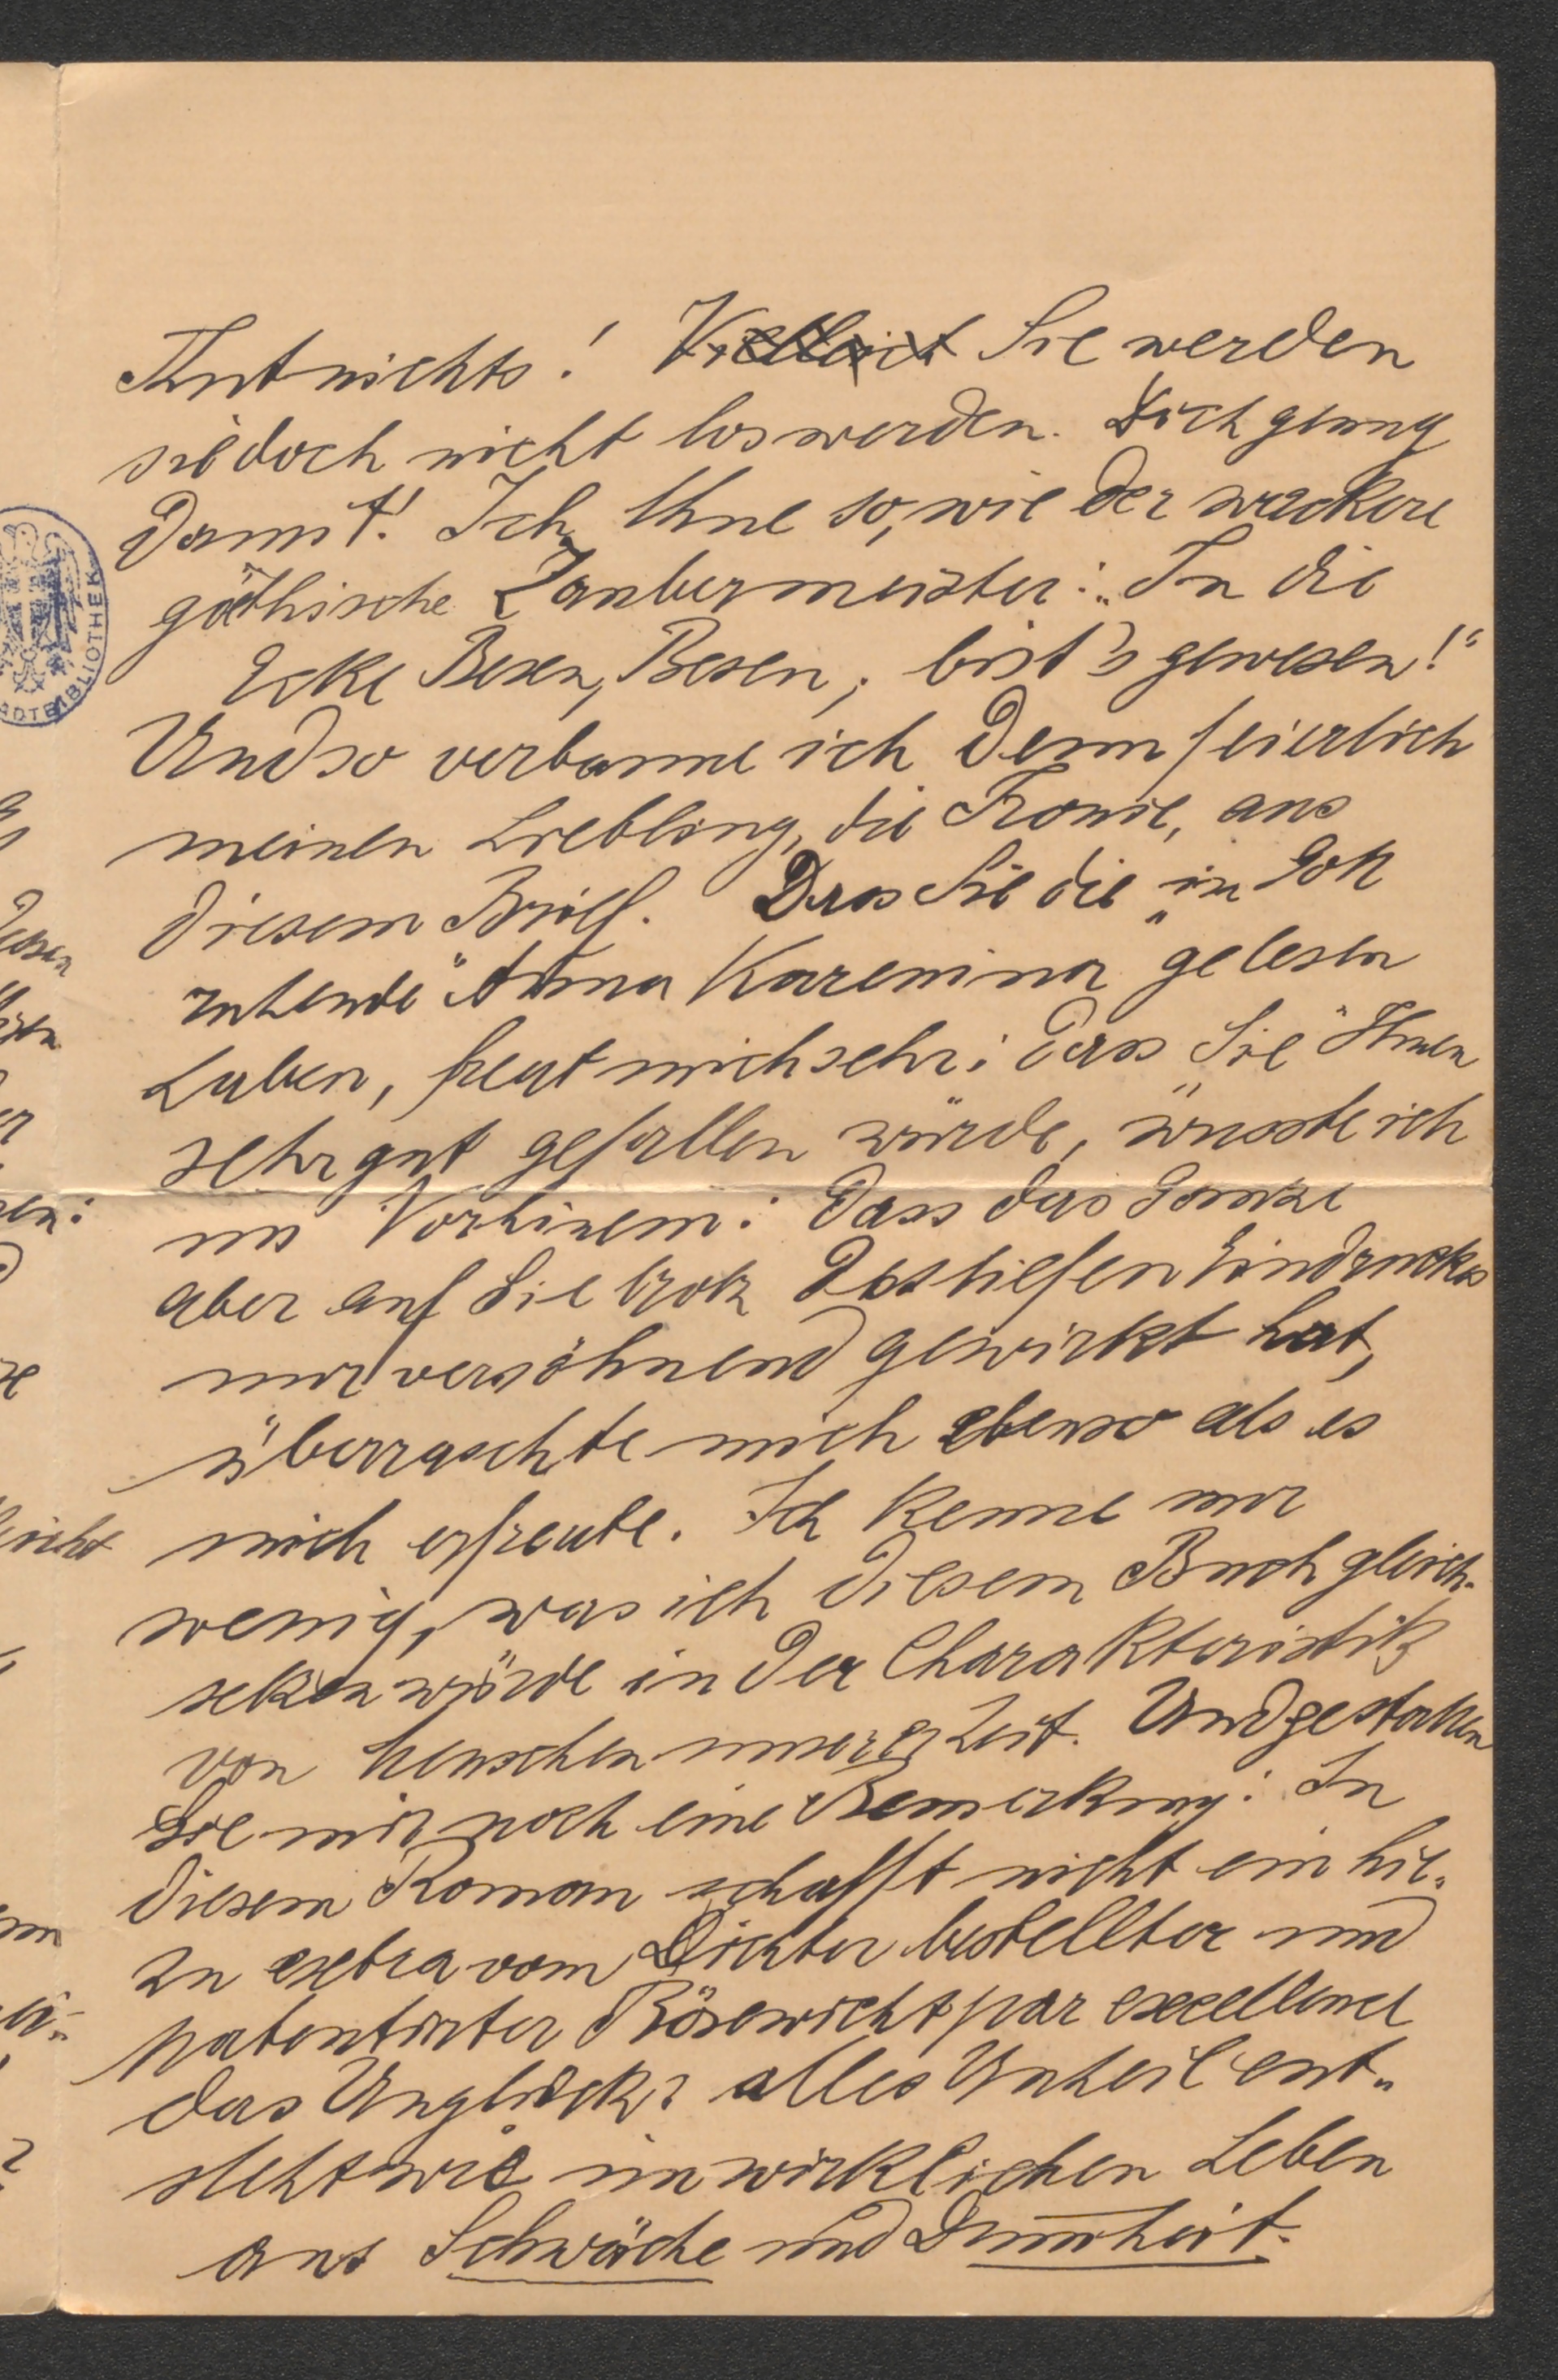 Thut nichts! Vielleicht Sie werden
sie doch nicht los werden. Doch genug
damit! Ich thue so, wie der wackere
göthische Zaubermeister: „In die
Ecke Besen, Besen, bist's gewesen!"
Und so verbanne ich denn feierlich
meinen Liebling, die Ironie, aus
diesem Brief. Dass Sie die „in Gott
ruhende" Anna Karenina gelesen
haben, freut mich sehr; dass Sie Ihnen
sehr gut gefallen würde, wusste ich
im Vorhinein: dass das Ganze
aber auf Sie trotz des tiefen Eindrucks
nur versöhnend gewirkt hat,
überraschte mich ebenso als es
mich erfreute. Ich kenne nur
wenig, was ich diesem Buch gleich-
setzen würde in der Charakteristik
von Menschen unserer Zeit. Und gestatten
Sie mir noch eine Bemerkung: In
diesem Roman schafft nicht ein hie-
zu extra vom Dichter bestellter und
patentirter Bösewicht par excellence
das Unglück: alles Unheil ent-
steht wie im wirklichen Leben
aus Schwäche und Dummheit.
BIBLIOTHEK